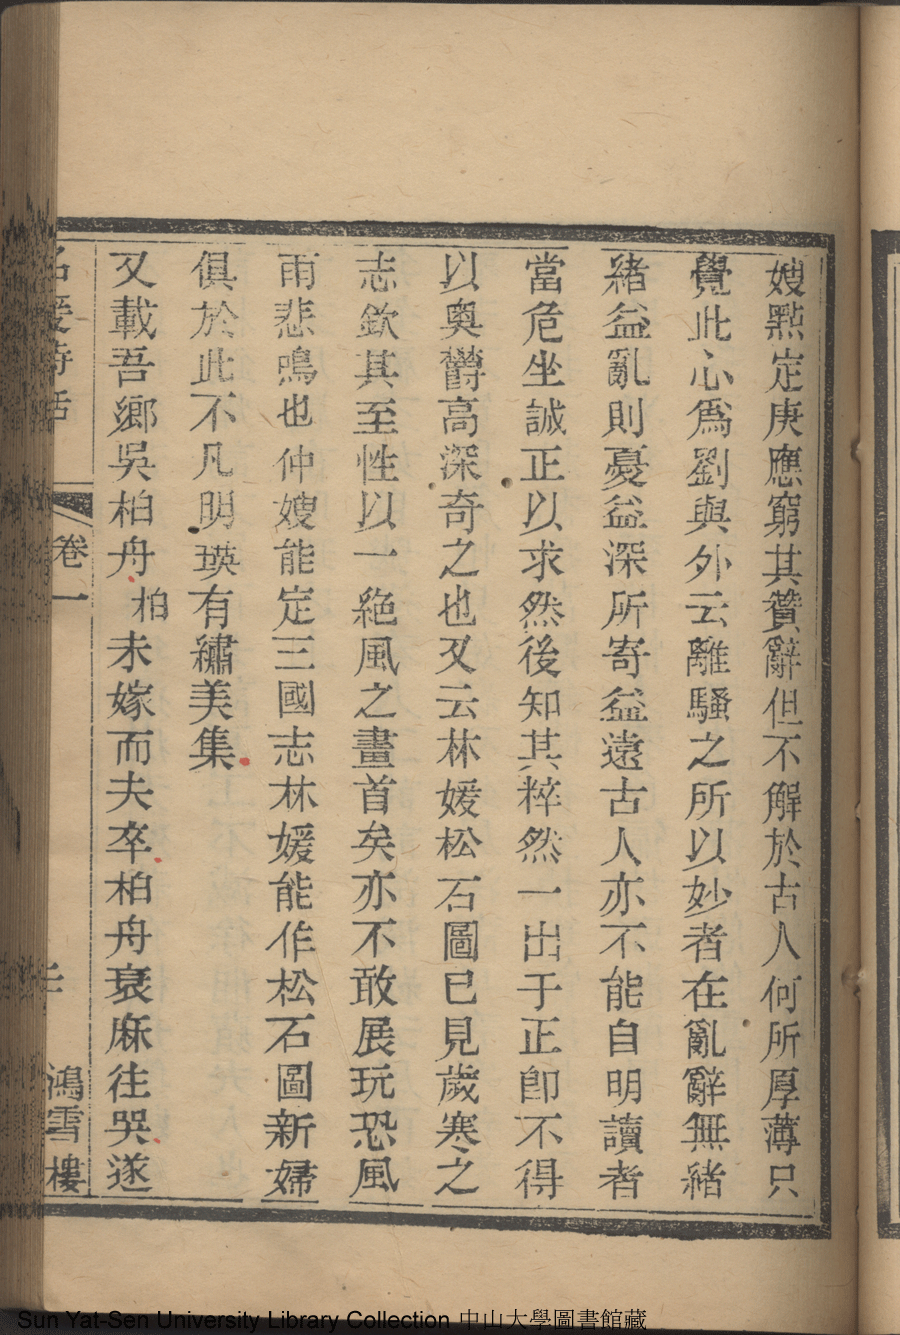 嫂點定庚應窮其贊辭但不解於古人何所厚薄只
覺此心爲劉與外云離騷之所以妙者在亂辭無緒
緒益亂則憂益深所寄益遠古人亦不能自明讀者
當危坐誠正以求然後知其粹然一出于正卽不得
以奧欝高深奇之也又云林媛松石圖已見歲寒之
志欽其至性以一絕風之畫首矣亦不敢展玩恐風
雨悲鳴也仲嫂能定三國志林媛能作松石圖新婦
俱於此不凡明瑛有繡美集
又載吾鄉吳柏舟柏未嫁而夫卒柏舟衰麻往哭遂
名媛詩話
卷一
鴻雪樓
Sun Yat-Sen University Library Collection 中山大學圖書館藏